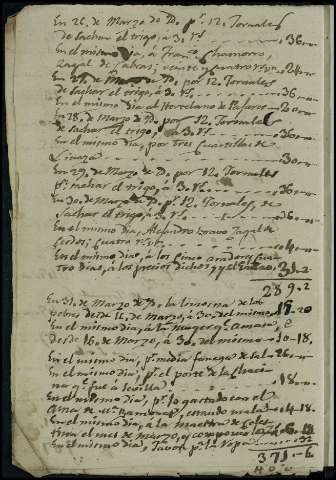 En 26. de Marzo de D. pr. 12. Tornales
de sachar el trigo, à 3. rs. 36
En el mismo dia, à Franco. Chamorro,
Zagal de Cabras, veinte y quatro rs. 24
En 27. de Marzo de D. por 12. Tornales
de sachar el trigo, à 3. rs. 36
En el mismo dia al Hortelano de
En 28. de Marzo de D. por 12. Tornales
de sachar el trigo, à 3. rs. 36
En el mismo dia, por Tres Quartillas de
Linaza 30
En 29. de Marzo de D. por 12. Tornales
pa. sachar el trigo, à 3. rs. 36
En 30. de Marzo de D. pr. 12. Tornales, de
sachar el trigo à 3. rs. 36
En el mismo dia, Alejandro Bravo Zagal de
Cerdos, quatro rs. 04
En el mismo dia, à los cinco aradores
tro dias, à los precios dichos, y el 31..2
289..2
En 31. de Marzo de D. la limosna de los
pobres desde 11. de Marzo, à 30. del mismo 19-20
En el mismo dia, à la muger q. amasa,
desde 16. de Marzo, à 30. del mismo 10-18
En el mismo dia, pr. media fanega de sal 26
En el mismo dia, pr. el porte de la
na q. fue à Sevilla 18
En el mismo dia, pr. lo gastado con el
Ama de estando mala 4-18.
En el mismo dia, à la Maestra de
tina el mes de Marzo, y componer 6-12
En el mismo dia, Javon pa. la Ropa 32
371-6